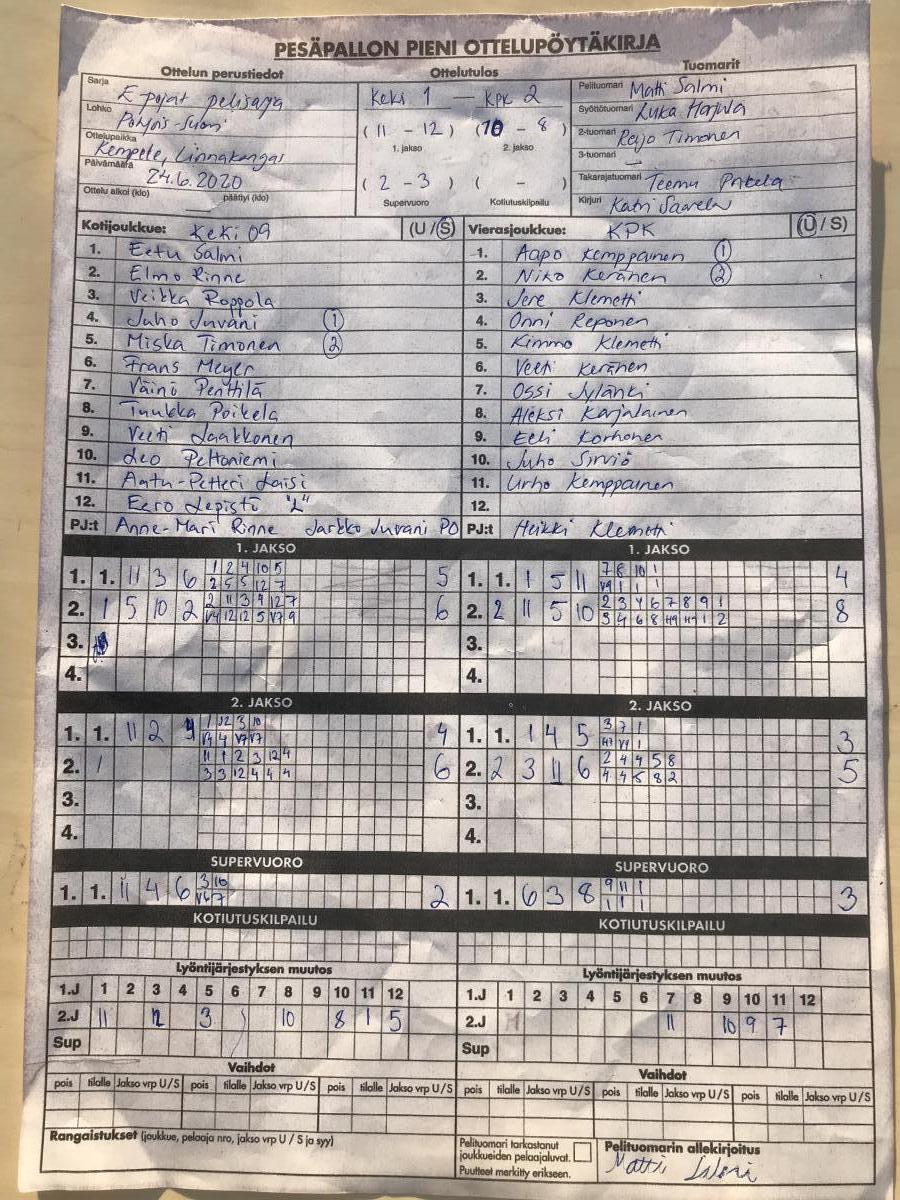 PESÄPALLON PIENI OTTELUPÖYTÄKIRJA
Ottelun perustiedot Ottelutulos Tuomarit
Sarja E pojat pelisarja
Lohko Pohjois-Suomi
Ottelupaikka Kempele, Linnakangas
Päivämäärä 24.6.2020
Ottelu alkoi (klo) päättyi (klo)
Keki 1 — KPK 2
(11 - 12) (10 - 8)
1. jakso 2. jakso
(2 - 3) ( - )
Supervuoro Kotiutuskilpailu
Pelituomari Matti Salmi
Syöttötuomari Luka
2-tuomari Reijo Timonen
3-tuomari —
Takarajatuomari Teemu
Kirjuri Katri Saarela
Kotijoukkue: KeKi 09 (U/S) Vierasjoukkue: KPK (U/S)
1. Eetu Salmi 1. Aapo Kemppainen 1
2. Elmo Rinne 2. Niko Keränen 2
3. Veikka Roppola 3. Jere Klemetti
4. Juho Juvani 1 4. Onni Reponen
5. Miska Timonen 2 5. Kimmo Klemetti
6. Frans Meyer 6. Veeti Keränen
7. Väinö Penttilä 7. Ossi Jylänki
8. Tuukka Poikela 8. Aleksi Karjalainen
9. Veeti Laakkonen 9. Eeli Korhonen
10. Leo Peltoniemi 10. Juho Sirviö
11. Aatu-Petteri Laisi 11. Urho Kemppainen
12. Eero Lepistö "L" 12.
PJ:t Anne-Mari Rinne Jarkko Juvani PO PJ:t Heikki Klemetti
1. JAKSO 1. JAKSO
1. 1. 11 3 6 1 2 4 10 5 5 1. 1. 1 5 11 7 8 10 1 4
2 5 5 12 7 V9 1 1 1
2. 1 5 10 2 2 11 3 9 12 7 6 2. 2 11 5 10 2 3 4 6 7 8 9 1 8
V4 12 12 5 V7 9 3 4 6 8 H9 H9 1 2
3. 3.
4. 4.
2. JAKSO 2. JAKSO
1. 1. 11 2 9 1 12 3 10 4 1. 1. 1 4 5 3 7 1 3
V3 4 V7 V7 H7 V9 1
2. 1 11 1 2 3 12 4 6 2. 2 3 11 6 2 4 4 5 8 5
3 3 12 4 4 4 4 4 5 8 2
3. 3.
4. 4.
SUPERVUORO SUPERVUORO
1. 1. 11 4 6 3 10 2 1. 1. 6 3 8 9 11 1 3
V6 7 1 1 1
KOTIUTUSKILPAILU KOTIUTUSKILPAILU
Lyöntijärjestyksen muutos Lyöntijärjestyksen muutos
1.J 1 2 3 4 5 6 7 8 9 10 11 12 1.J 1 2 3 4 5 6 7 8 9 10 11 12
2.J 11 12 3 10 8 1 5 2.J 11 10 9 7
Sup Sup
Vaihdot Vaihdot
pois tilalle Jakso vrp U/S pois tilalle Jakso vrp U/S pois tilalle Jakso vrp U/S pois tilalle Jakso vrp U/S pois tilalle Jakso vrp U/S pois tilalle Jakso vrp U/S
Rangaistukset (joukkue, pelaaja nro, jakso vrp U / S ja syy)
Pelituomari tarkastanut
joukkueiden pelaajaluvat.
Puutteet merkitty erikseen.
Pelituomarin allekirjoitus
Matti Salmi